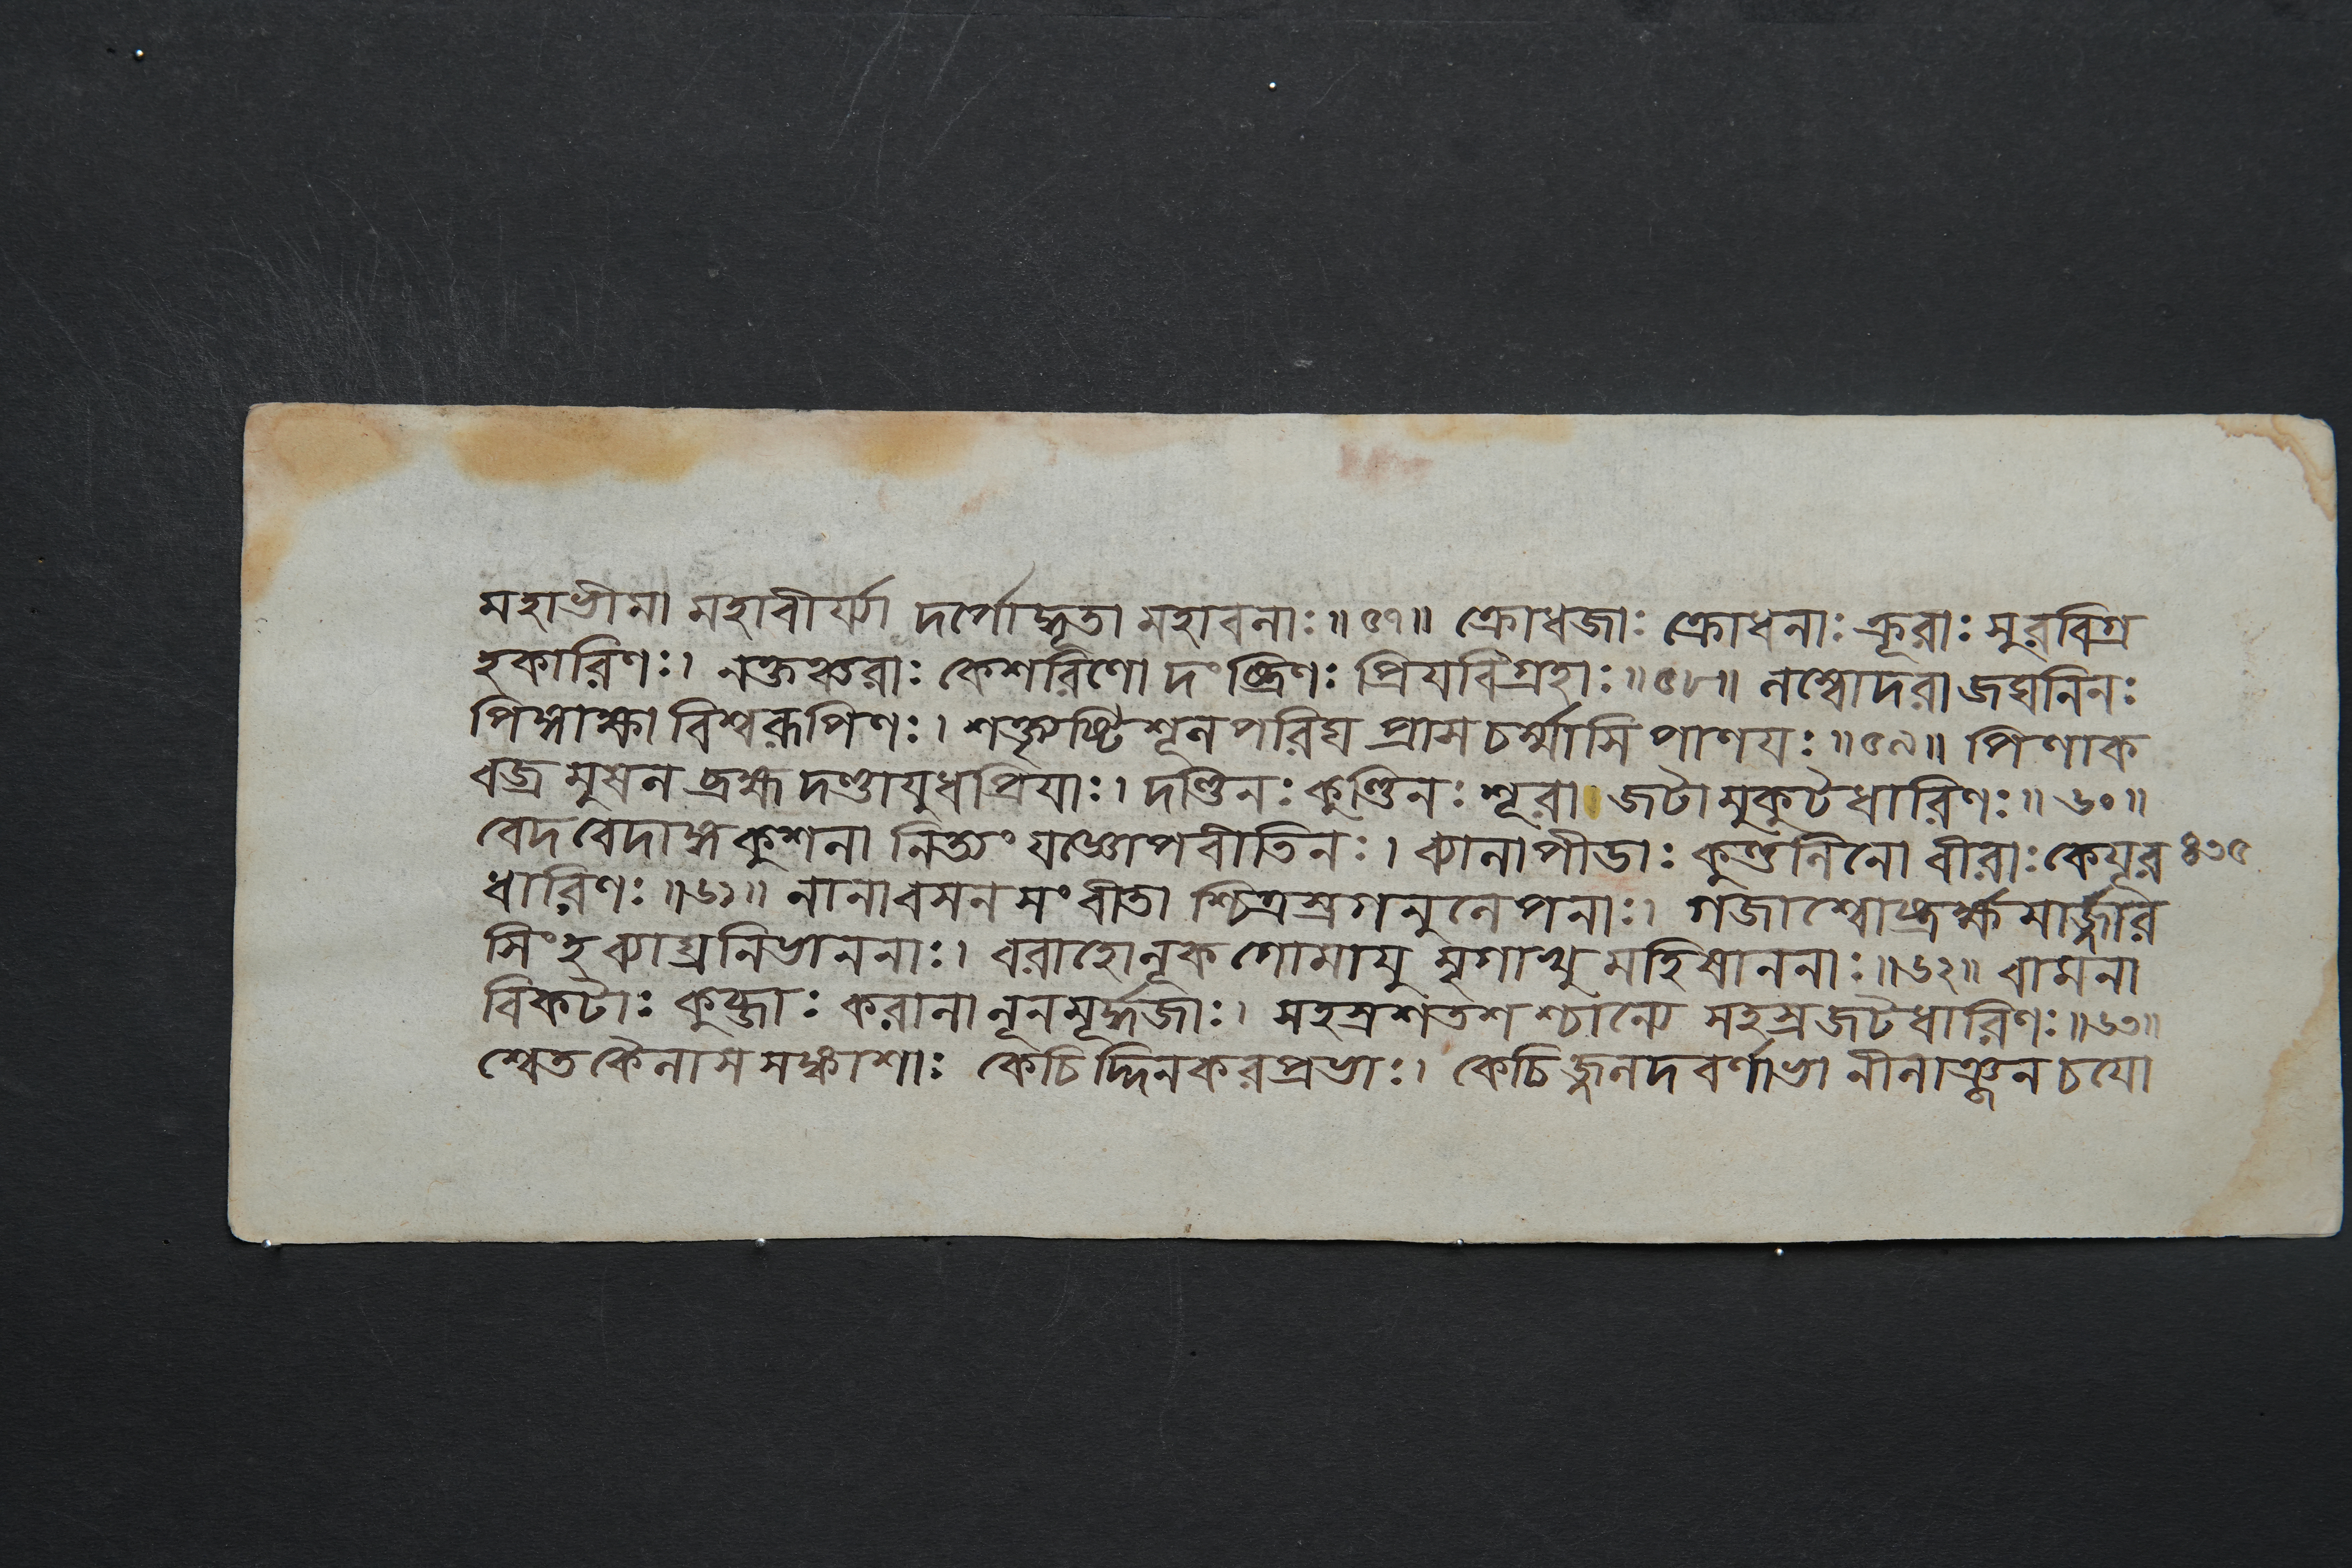 মহাভীমা মহাবীর্য্যা দর্পোদ্ধৃতা মহাবলাঃ॥ ৫৭॥ ক্রোধজাঃ ক্রোধনাঃ ক্রূরাঃ সুরবিগ্র
হকারিণঃ। নক্তঞ্চরাঃ কেশরিণো দংষ্ট্রিণঃ প্রিযবিগ্রহাঃ॥৫৮॥ লম্বোদরা জঘনিনঃ
পিঙ্গাক্ষা বিশ্বরূপিণঃ। শক্ত্যৃষ্টিশূলপরিঘপ্রাসচর্ম্মাসিপাণযঃ॥৫৯॥ পিণাক
বজ্রমুষলব্রহ্মদণ্ডাযুধপ্রিযাঃ। দণ্ডিনঃ কুণ্ডিনঃ শূরা জটামুকুটধারিণঃ॥৬০॥
বেদবেদাঙ্গকুশলা নিত্যং যজ্ঞোপবীতিনঃ। ব্যালাপীডাঃ কুণ্ডলিনো বীরাঃ কেযূর ৪৩৫
ধারিণঃ॥৬১॥ নানাবসনসংবীতা শ্চিত্রস্রগনুলেপনাঃ। গজাশ্বোষ্ট্রর্ক্ষমার্জ্জারি
সিংহব্যাঘ্রনিভাননাঃ। বরাহোলূকগোমাযুমৃগাখুমহিষাননাঃ॥৬২॥ বামনা
বিকটাঃ কুব্জাঃ করালা লূনমূর্দ্ধজাঃ। সহস্রশতশশ্চান্যে সহস্রজটধারিণঃ॥৬৩॥
শ্বেতকৈলাসসঙ্কাশাঃ কেচিদ্দিনকরপ্রভাঃ। কেচিজ্জলদবর্ণাভা নীলাঞ্জনচযো